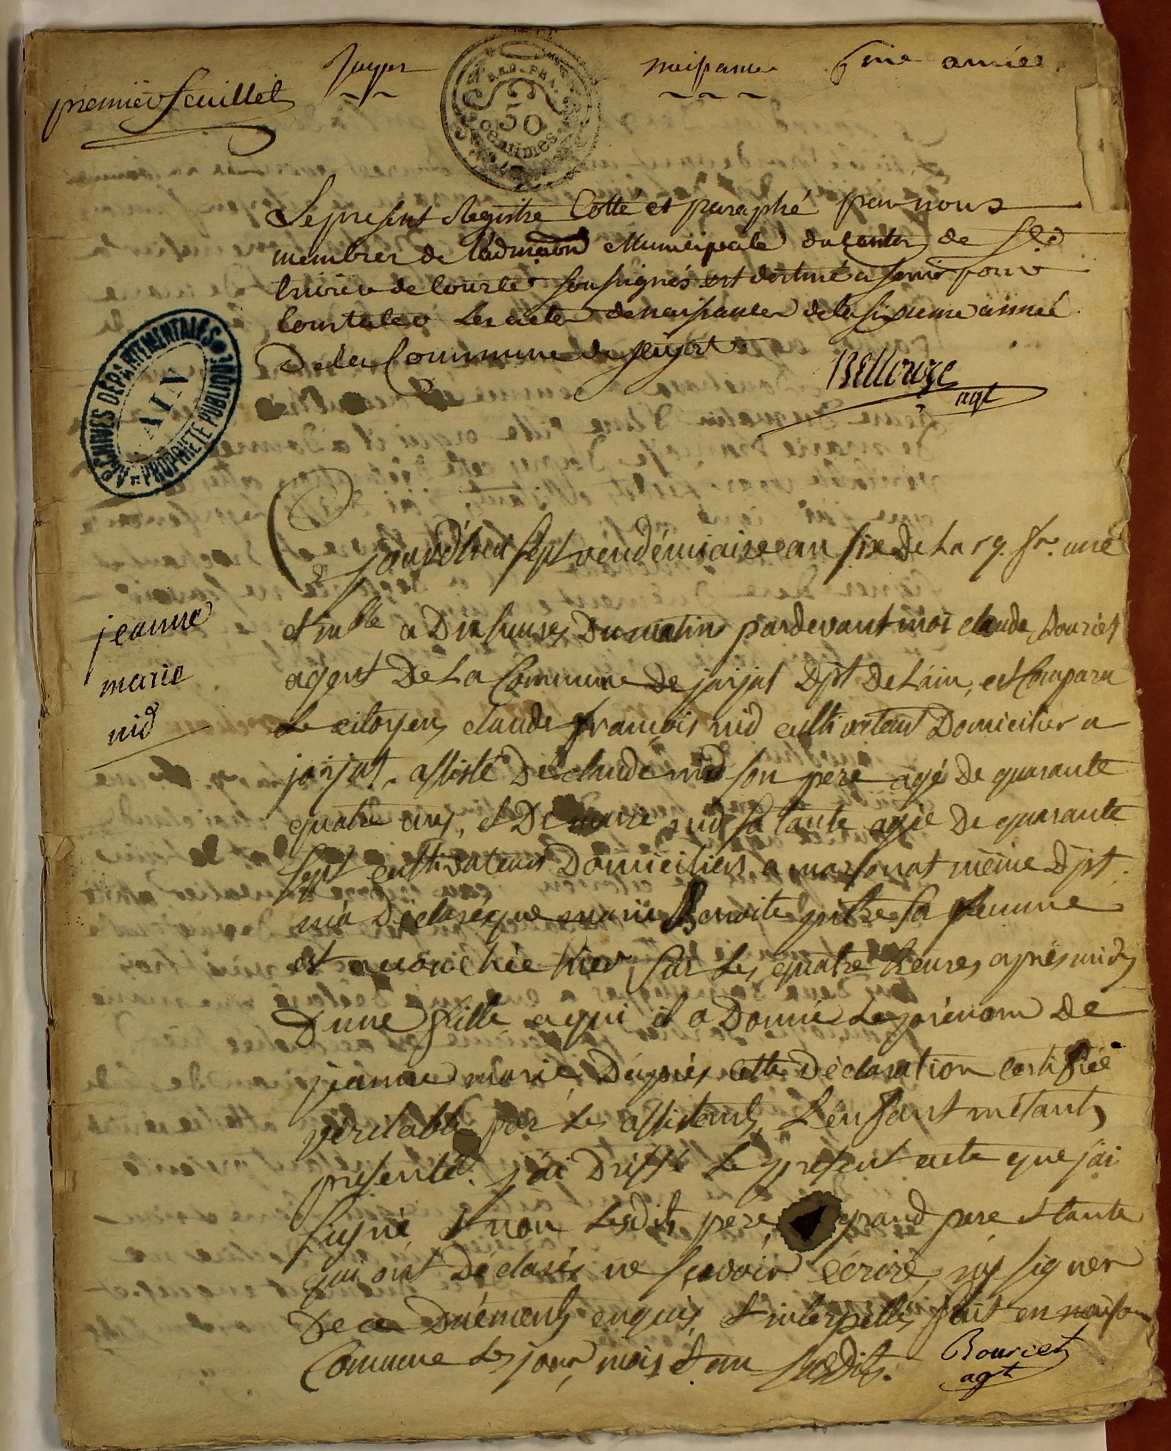 premier feuillet
jujur
naissance 6me année
REP. FRA.
50
centimes
Le present Registre Cotté et paraphé par nous
membres de Ladmaon Municipale du Canton de
de Courte soussignés est destiné a servir pour
les actes de naissances de la sixieme année
De la Commune de jujat
Bellouze
agt
ARCHIVES DÉPARTEMENTALES
AIN
PROPRIÉTÉ PUBLIQUE
jeanne
marie
nid
jourdhui sept vendémiaire an six De La rq. fr. une
et in.ble a Dix heures Du matin pardevant moi claude Bouriet
agent De La Commune de jujat Dpt De Lain, est Comparu
Le citoyen claude francois nid cultivateur Domicilier a
jujat, assisté De claude nid son pere agé de quarante
quatre ans, et De marie nid sa tante agée De quarante
sept cultivateurs Domiciliers a marsonat même Dpt.
m'a Déclaré que marie Benoite sa femme
est accouchée hier, sur Les quatre heures après midy
D'une fille a qui il a Donné Le prénom De
jeanne marie, D'après cette Déclaration certifiée
veritable par Les assistants, L'enfant m'étant
présenté. j'ai Dréssé Le present acte que j'ai
signé, et non Lesdits père, grand pere et tante
qui ont Declarés ne sçavoir écrire, ny signer
De ce Duéments enquis, et interpellés fait en maison
Comune Les jour, mois et an susdits.
Bouriet
agt